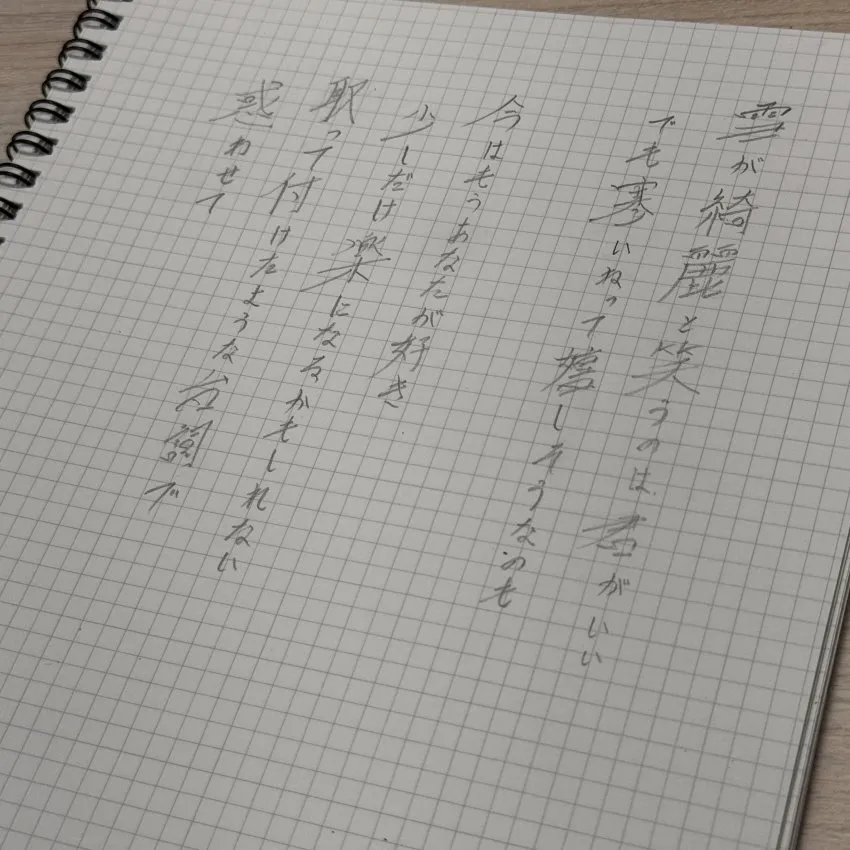 雪が綺麗と笑うのは君がいい
でも寒いねって嬉しそうなのも
今はもうあなたが好き
少しだけ楽になるかもしれない
取って付けたような台詞で
惑わせて